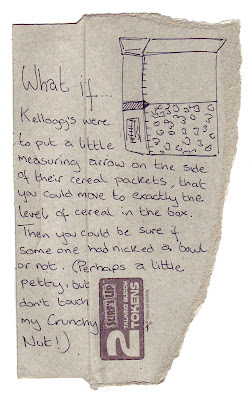 What if...
Kellogg's were
to put a little
measuring arrow on the side
of their cereal packets, that
you could move to exactly the
level of cereal in the box.
Then you could be sure if
some one had nicked a bowl
or not. (Perhaps a little
petty, but
don't touch
my Crunchy
Nut!)
SURF'S UP
2
TALKING SUDOKU
TOKENS